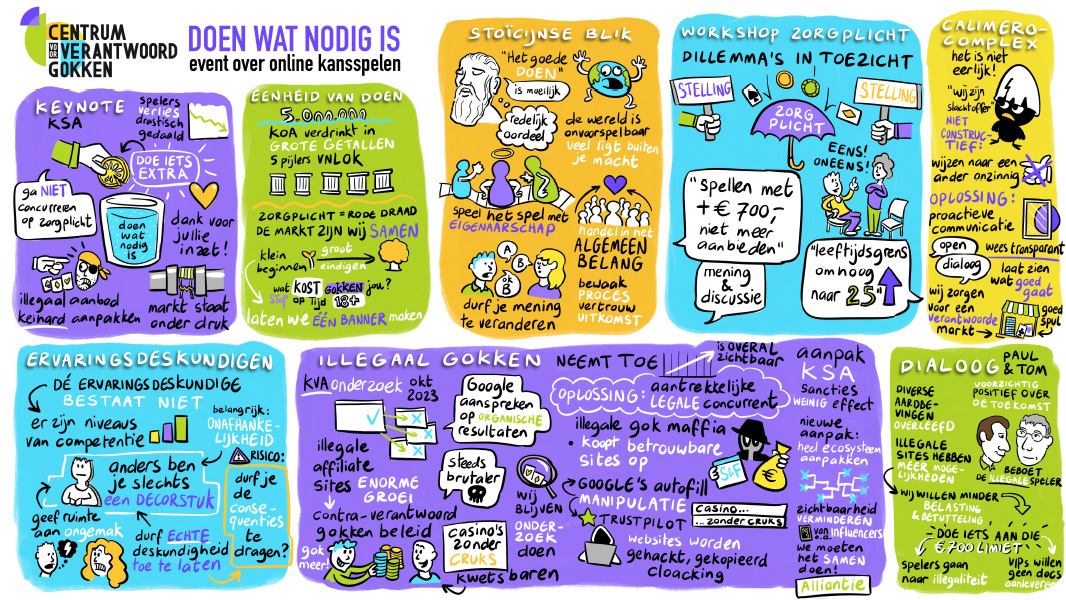 CENTRUM
VOOR
VERANTWOORD
GOKKEN
DOEN WAT NODIG IS
event over online kansspelen
KEYNOTE
KSA
spelers
verlies
drastisch
gedaald
DOE IETS
EXTRA
ga NIET
concurreren
op zorgplicht
doen
wat
nodig
is
dank voor
jullie
inzet!
illegaal aanbod
keihard aanpakken
markt staat
onder druk
EENHEID VAN DOEN
5.000.000
KOA verdrinkt in
GROTE GETALLEN
5 pijlers VNLOK
ZORGPLICHT = RODE DRAAD
DE MARKT ZIJN WIJ SAMEN
klein
beginnen
groot
eindigen
wat KOST GOKKEN jou?
STOP op tijd 18+
laten we ÉÉN BANNER maken
STOÏCIJNSE BLIK
"Het goede
DOEN"
is moeilijk
redelijk
oordeel
de wereld is
onvoorspelbaar
veel ligt buiten
je macht
speel het spel met
EIGENAARSCHAP
handel in het
ALGEMEEN
BELANG
A
B
A
of
B
durf je mening
te veranderen
bewaak
PROCES
vertrouw
UITKOMST
WORKSHOP ZORGPLICHT
DILLEMMA'S IN TOEZICHT
STELLING
STELLING
ZORG
PLICHT
EENS!
ONEENS!
"spellen met
+ € 700,-
niet meer
aanbieden"
mening
&
discussie
"leeftijdsgrens
omhoog
naar 25"
CALIMERO-
COMPLEX
het is niet
eerlijk!
"wij zijn
slachtoffer"
NIET
CONSTRUC-
TIEF:
wijzen naar een
ander onzinnig
OPLOSSING:
proactieve
communicatie
open
dialoog
wees transparant
laat zien
wat goed
gaat
wij zorgen
voor een
verantwoorde
markt
goed
spul
ERVARINGSDESKUNDIGEN
DÉ ERVARINGSDESKUNDIGE
BESTAAT NIET
er zijn niveaus
van competentie
belangrijk:
ONAFHANKE-
LIJKHEID
RISICO:
anders ben
je slechts
een DECORSTUK
durf je
de
conse-
quenties
te
dragen?
geef ruimte
aan ongemak
durf ECHTE
deskundigheid
toe te laten
ILLEGAAL GOKKEN NEEMT TOE
is OVERAL
zichtbaar
KVA onderzoek okt
2023
Google
aanspreken
op ORGANISCHE
resultaten
illegale
affiliate
sites ENORME
GROEI
steeds
brutaler
contra-verantwoord
gokken beleid
gok
meer!
casino's
zonder
CRUKS
kwetsbaren
wij
BLIJVEN
ONDER-
ZOEK
doen
OPLOSSING: aantrekkelijke
LEGALE concurrent
illegale gok maffia
• Koopt betrouwbare
sites op
S&F
€
GOOGLE's autofill
MANIPULATIE
casino...
...zonder CRUKS
TRUSTPILOT
websites worden
gehackt, gekopieerd
cloacking
aanpak
KSA
sancties
WEINIG effect
nieuwe
aanpak:
heel ecosysteem
aanpakken
zichtbaarheid
VERMINDEREN
van influencers
we moeten
het SAMEN
doen!
Alliantie
DIALOOG PAUL
& TOM
DIVERSE
AARDBE-
VINGEN
OVERLEEFD
VOORZICHTIG
POSITIEF OVER
DE TOEKOMST
ILLEGALE
SITES HEBBEN
MEER MOGE-
LIJKHEDEN
BEBOET
DE ILLEGALE SPELER
WIJ WILLEN MINDER
BELASTING
& BETUTTELING
DOE IETS AAN DIE
€700 LIMIET
spelers gaan
naar illegaliteit
VIPs willen
geen docs
aanleveren